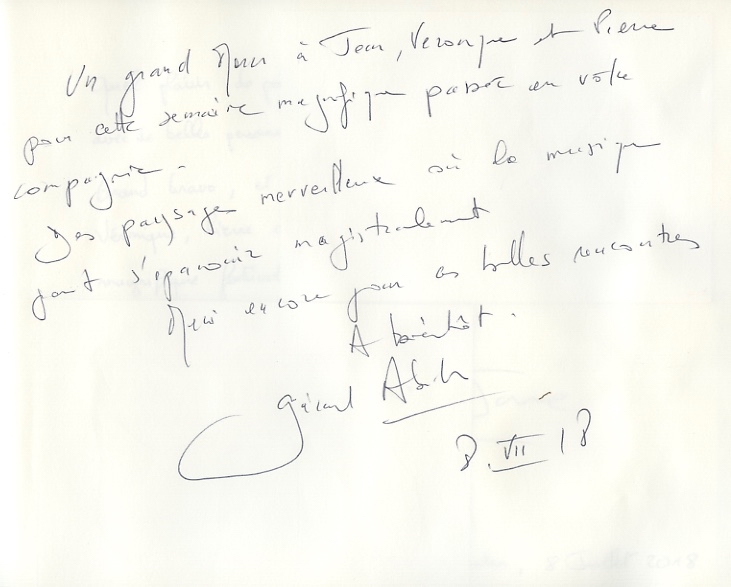 Un grand Merci à Jean, Véronique et Pierre
pour cette semaine magnifique passée en votre
compagnie.
Des paysages merveilleux où la musique
peut s'épanouir magistralement
Merci encore pour ces belles rencontres
A bientôt.
Gérard
8.VII 18